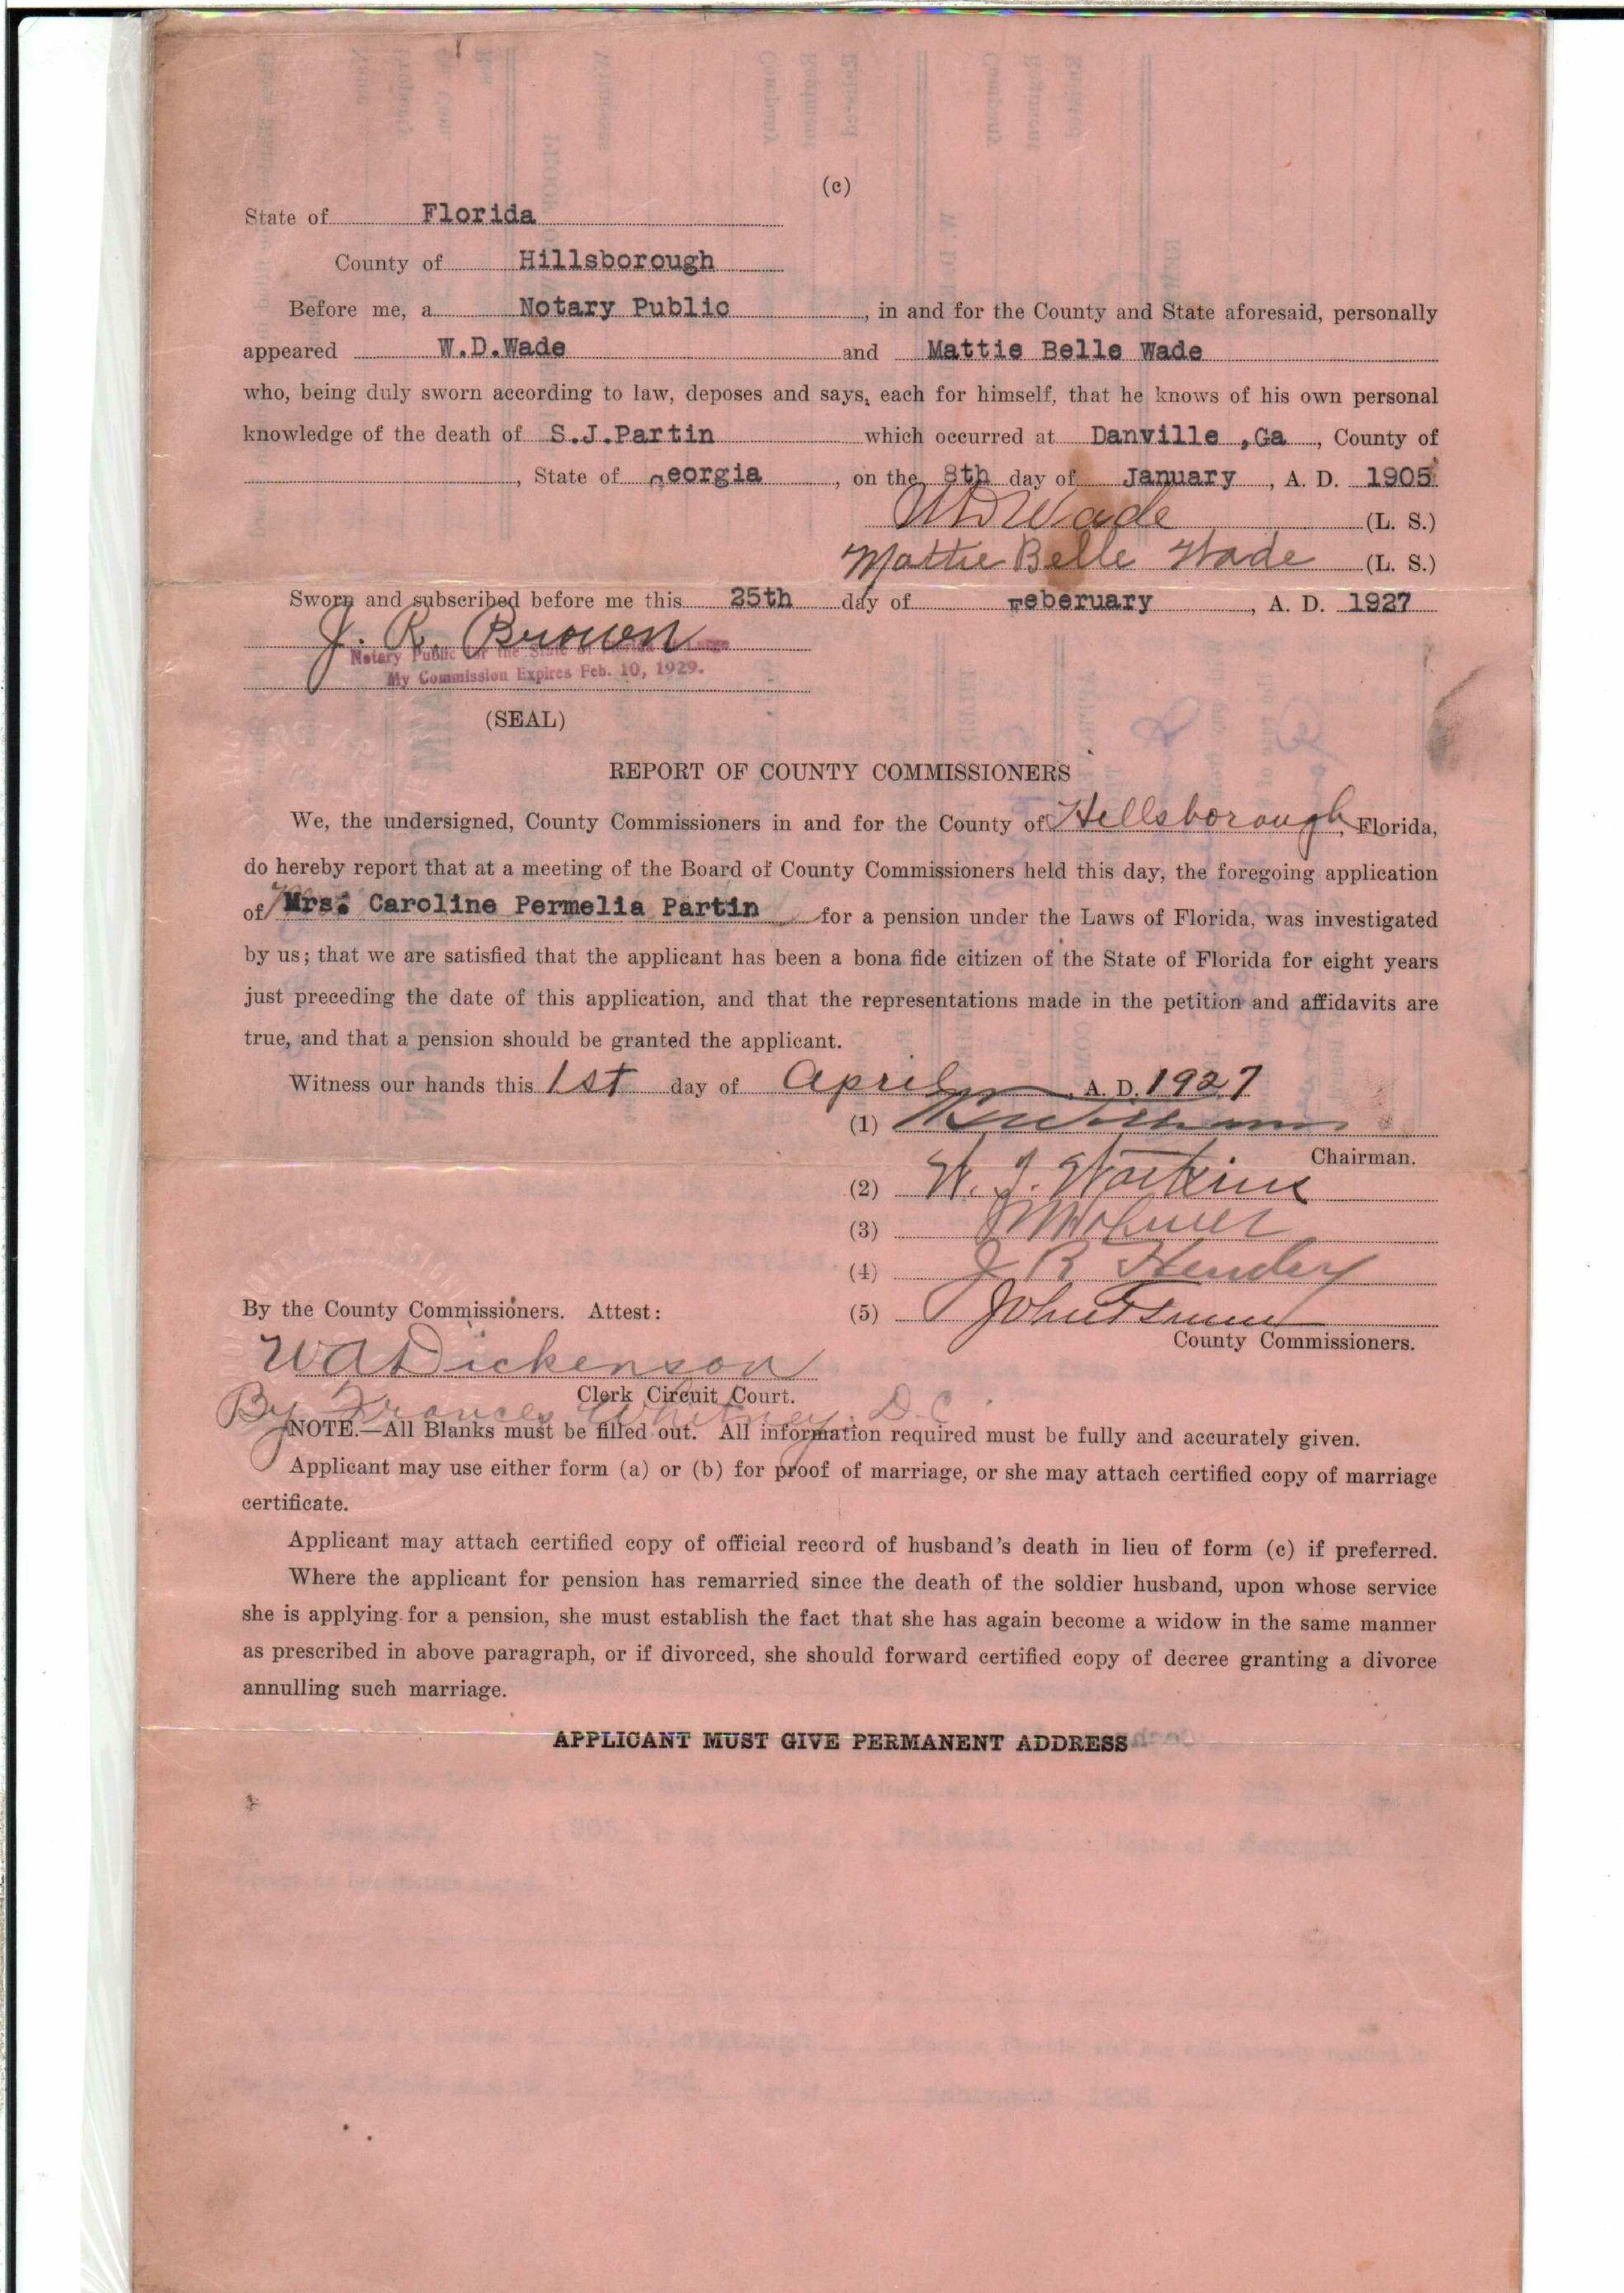 (c)
State of Florida
County of Hillsborough
Before me, a Notary Public, in and for the County and State aforesaid, personally
appeared W.D.Wade and Mattie Belle Wade
who, being duly sworn according to law, deposes and says, each for himself, that he knows of his own personal
knowledge of the death of S.J.Partin which occurred at Danville ,Ga, County of
, State of Georgia, on the 8th day of January, A. D. 1905
W D Wade (L. S.)
Mattie Belle Wade (L. S.)
Sworn and subscribed before me this 25th day of Feberuary, A. D. 1927
J. R. Brown
Notary Public for the State of Large
My Commission Expires Feb. 10, 1929.
(SEAL)
REPORT OF COUNTY COMMISSIONERS
We, the undersigned, County Commissioners in and for the County of Hellsborough, Florida,
do hereby report that at a meeting of the Board of County Commissioners held this day, the foregoing application
of Mrs. Caroline Permelia Partin for a pension under the Laws of Florida, was investigated
by us; that we are satisfied that the applicant has been a bona fide citizen of the State of Florida for eight years
just preceding the date of this application, and that the representations made in the petition and affidavits are
true, and that a pension should be granted the applicant.
Witness our hands this 1st day of April, A. D. 1927
(1)
Chairman.
(2) W. J. Watkins
(3)
(4) J R Hendry
By the County Commissioners. Attest: (5) John
County Commissioners.
W A Dickenson
Clerk Circuit Court.
By Frances Whitney D.C.
NOTE.—All Blanks must be filled out. All information required must be fully and accurately given.
Applicant may use either form (a) or (b) for proof of marriage, or she may attach certified copy of marriage
certificate.
Applicant may attach certified copy of official record of husband's death in lieu of form (c) if preferred.
Where the applicant for pension has remarried since the death of the soldier husband, upon whose service
she is applying for a pension, she must establish the fact that she has again become a widow in the same manner
as prescribed in above paragraph, or if divorced, she should forward certified copy of decree granting a divorce
annulling such marriage.
APPLICANT MUST GIVE PERMANENT ADDRESS